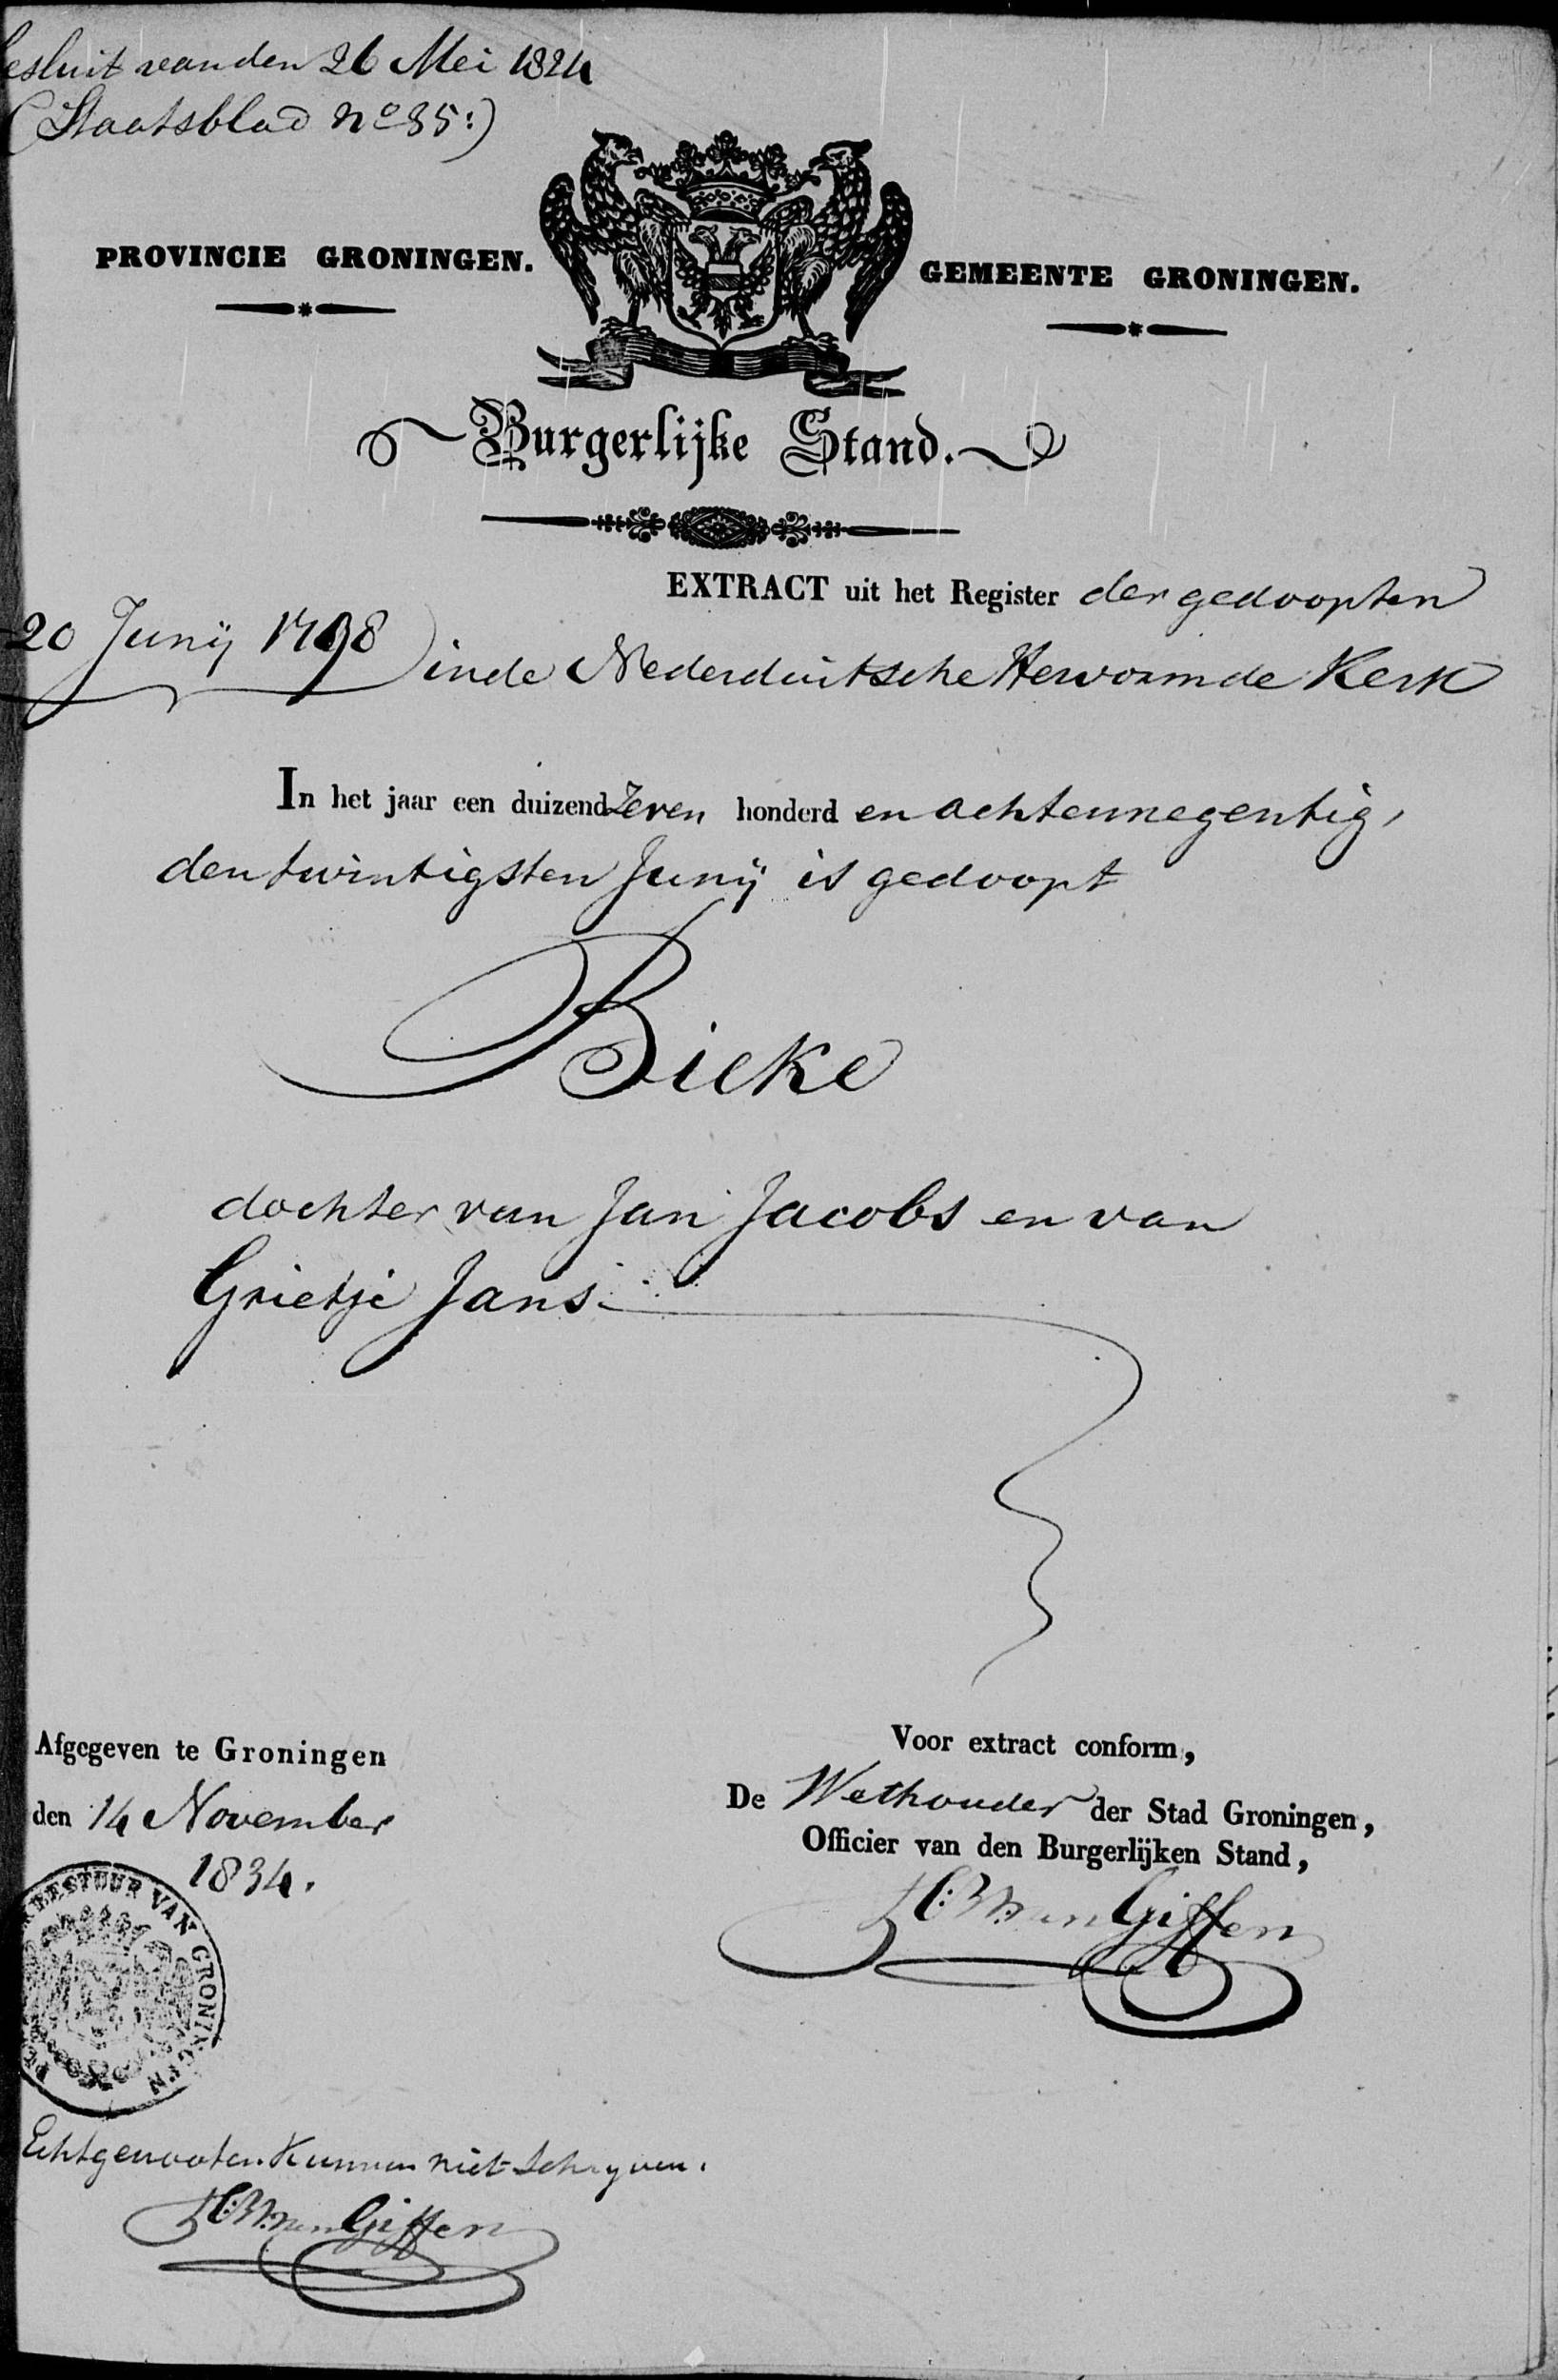 esluit van den 26 Mei 1824
(Staatsblad No 35:)
PROVINCIE GRONINGEN.
GEMEENTE GRONINGEN.
Burgerlijke Stand.
EXTRACT uit het Register der gedoopten
20 Junij 1798
in de Nederduitsche Hervormde Kerk
In het jaar een duizend zeven honderd en achtennegentig,
den twintigsten Junij is gedoopt
Bieke
dochter van Jan Jacobs en van
Grietje Jans
Afgegeven te Groningen
den 14 November
1834.
Voor extract conform,
De Wethouder der Stad Groningen,
Officier van den Burgerlijken Stand,
van Giffen
BESTUUR VAN GRONINGEN
Echtgenooten kunnen niet schryven.
van Giffen